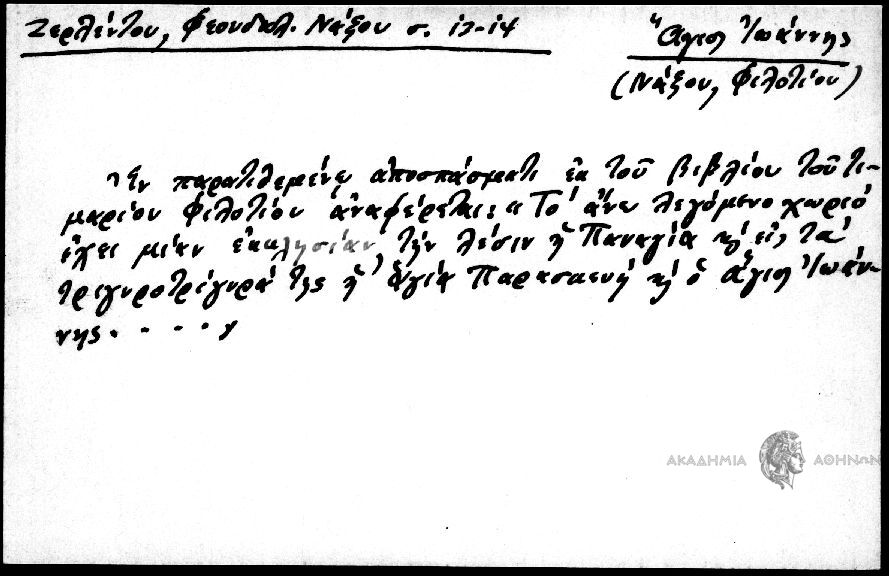 Ζερλέντου, Φεουδαλ. Νάξου σ. 13-14
Ἅγιος Ἰωάννης
(Νάξου, Φιλοτίου)
Ἐν παρατιθεμένῳ ἀποσπάσματι ἐκ τοῦ βιβλίου τοῦ τι-
μαρίου Φιλοτίου ἀναφέρεται: «Τὸ ἄνω λεγόμενο χωριό
ἔχει μίαν ἐκκλησίαν τὴν λέσιν ἡ Παναγία κ̀ εἰς τὰ
τριγυροτρίγυρά της ἡ ἁγία Παρασκευή κ̀ ὁ ἅγιος Ἰωάν-
νης....»
ΑΚΑΔΗΜΙΑ ΑΘΗΝΩΝ